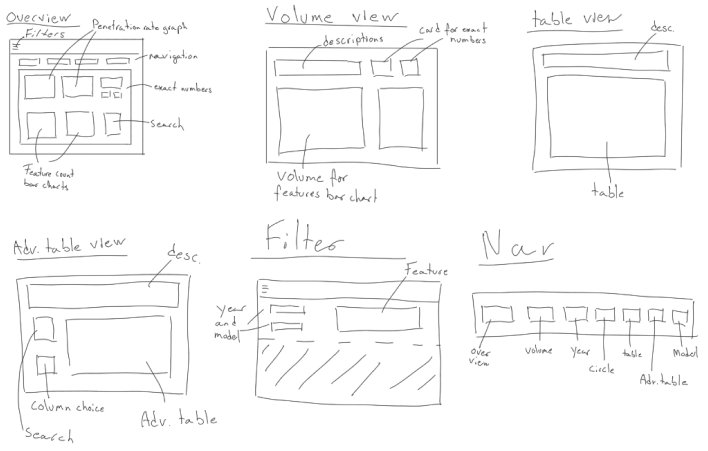 Overview
Filters
Penetration rate graph
navigation
exact numbers
Search
Feature count
bar charts
Volume view
descriptions
card for exact
numbers
Volume for
features bar chart
table view
desc.
table
Adv. table view
desc.
Column choice
Search
Adv. table
Filter
Feature
year
and
model
Nav
over
view
volume
year
Circle
table
Adv. table
Model